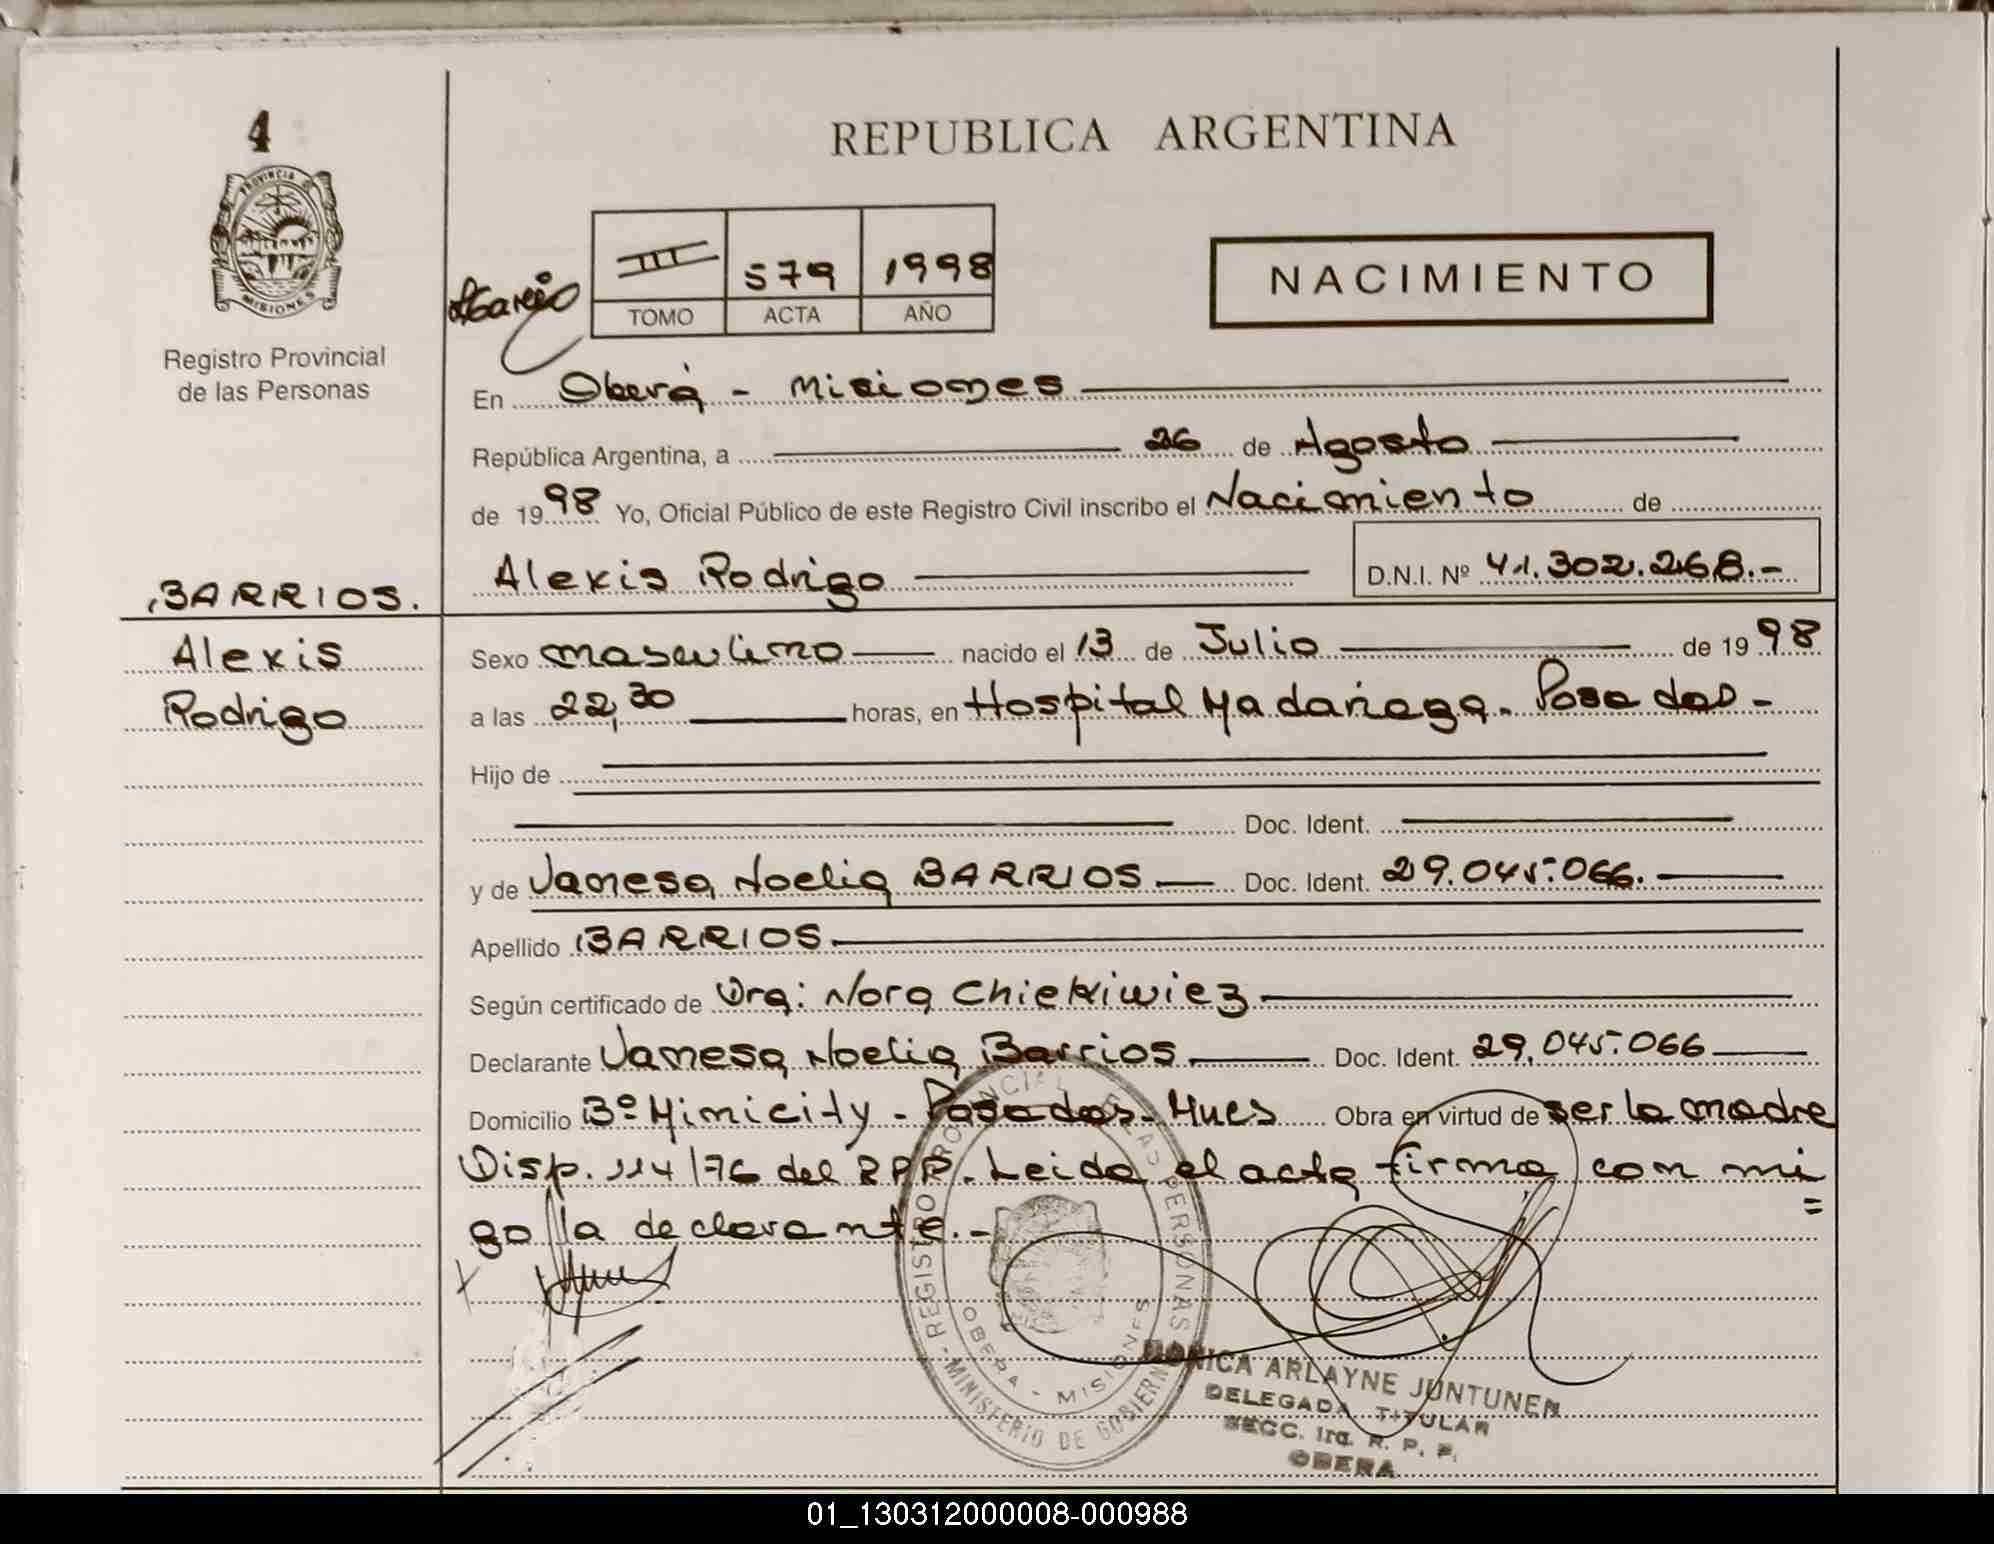 4
PROVINCIA DE
MISIONES
Registro Provincial
de las Personas
BARRIOS.
Alexis
Rodrigo
REPUBLICA ARGENTINA
III 579 1998
TOMO ACTA AÑO
NACIMIENTO
En Oberá - Misiones
República Argentina, a 26 de Agosto
de 1998 Yo, Oficial Público de este Registro Civil inscribo el Nacimiento de
Alexis Rodrigo D.N.I. Nº 41.302.268.-
Sexo masculino nacido el 13 de Julio de 1998
a las 22,30 horas, en Hospital Madariaga - Posadas -
Hijo de
Doc. Ident.
y de Vanesa Noelia BARRIOS Doc. Ident. 29.045.066.
Apellido BARRIOS.
Según certificado de Dra: Nora Chiekiwiez
Declarante Vanesa Noelia Barrios Doc. Ident. 29.045.066
Domicilio Bº Minicity - Posadas - Mnes Obra en virtud de ser la madre
Disp. 114/76 del RPP. Leida el acta firma con mi
go la declarante.-
REGISTRO PROVINCIAL DE LAS PERSONAS
OBERA - MISIONES
MINISTERIO DE GOBIERNO
MONICA ARLAYNE JUNTUNEN
DELEGADA TITULAR
SECC. 1ra. R. P. P.
OBERA
01_130312000008-000988